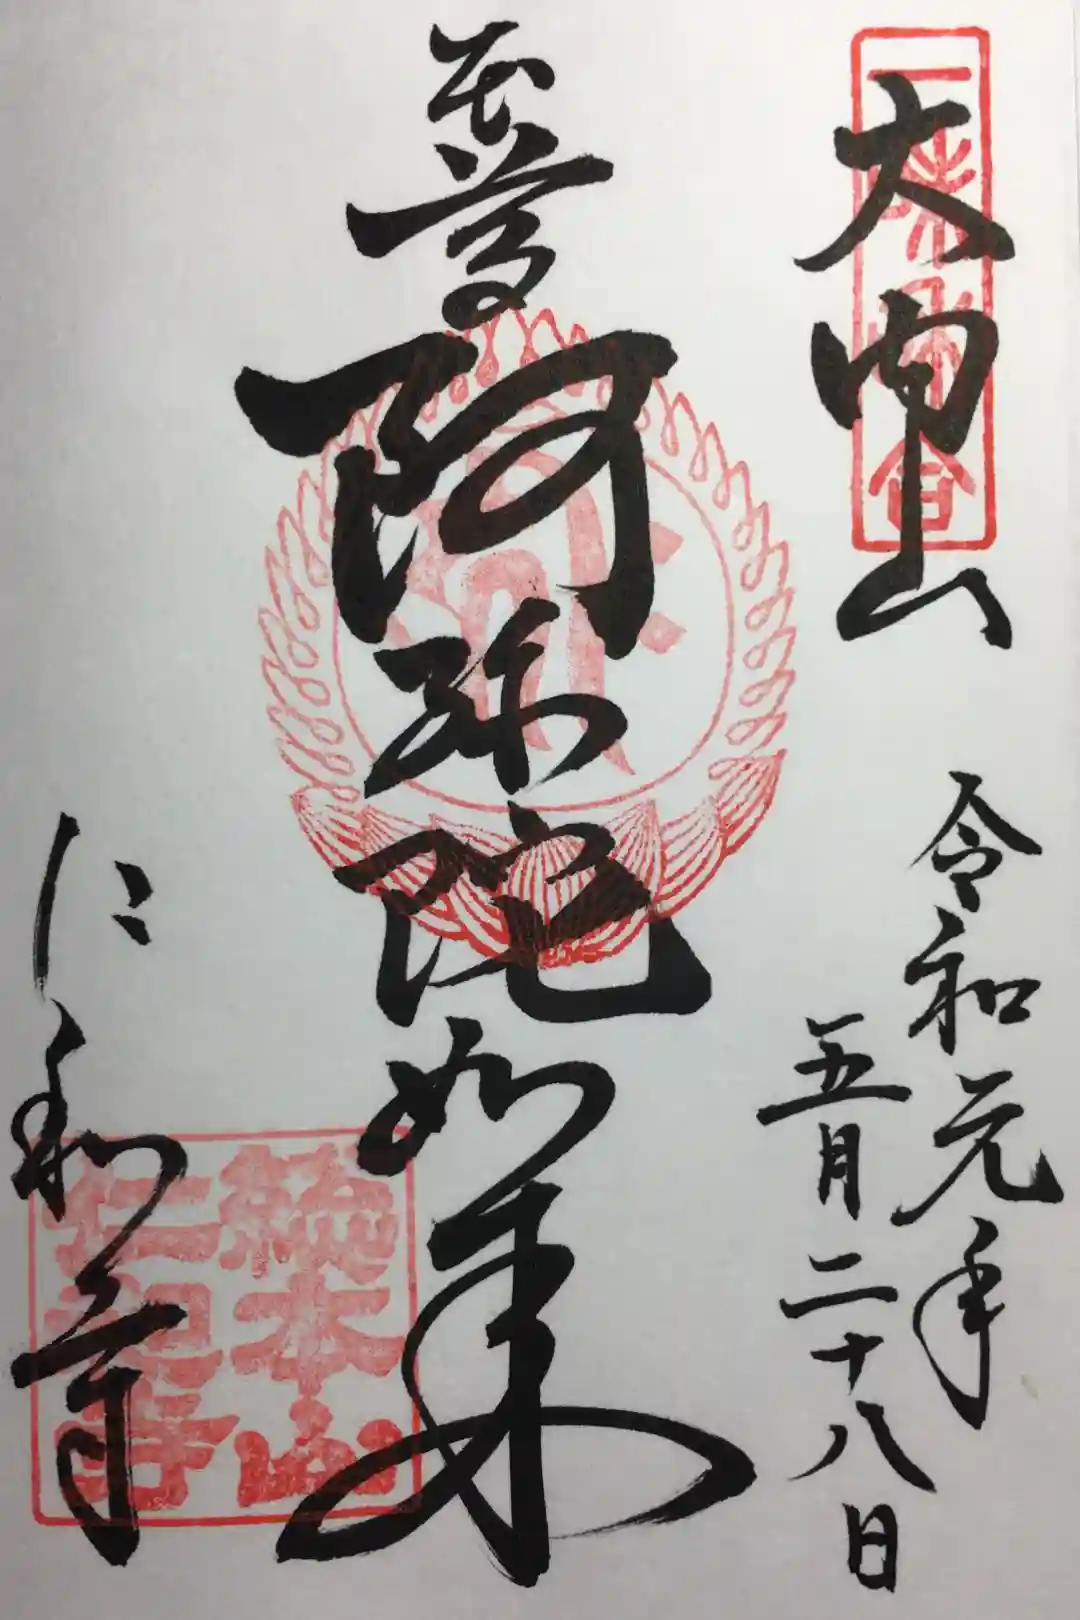 大内山
令和元年
五月二十八日
本尊
阿弥陀如来
仁和寺
総本山
仁和寺